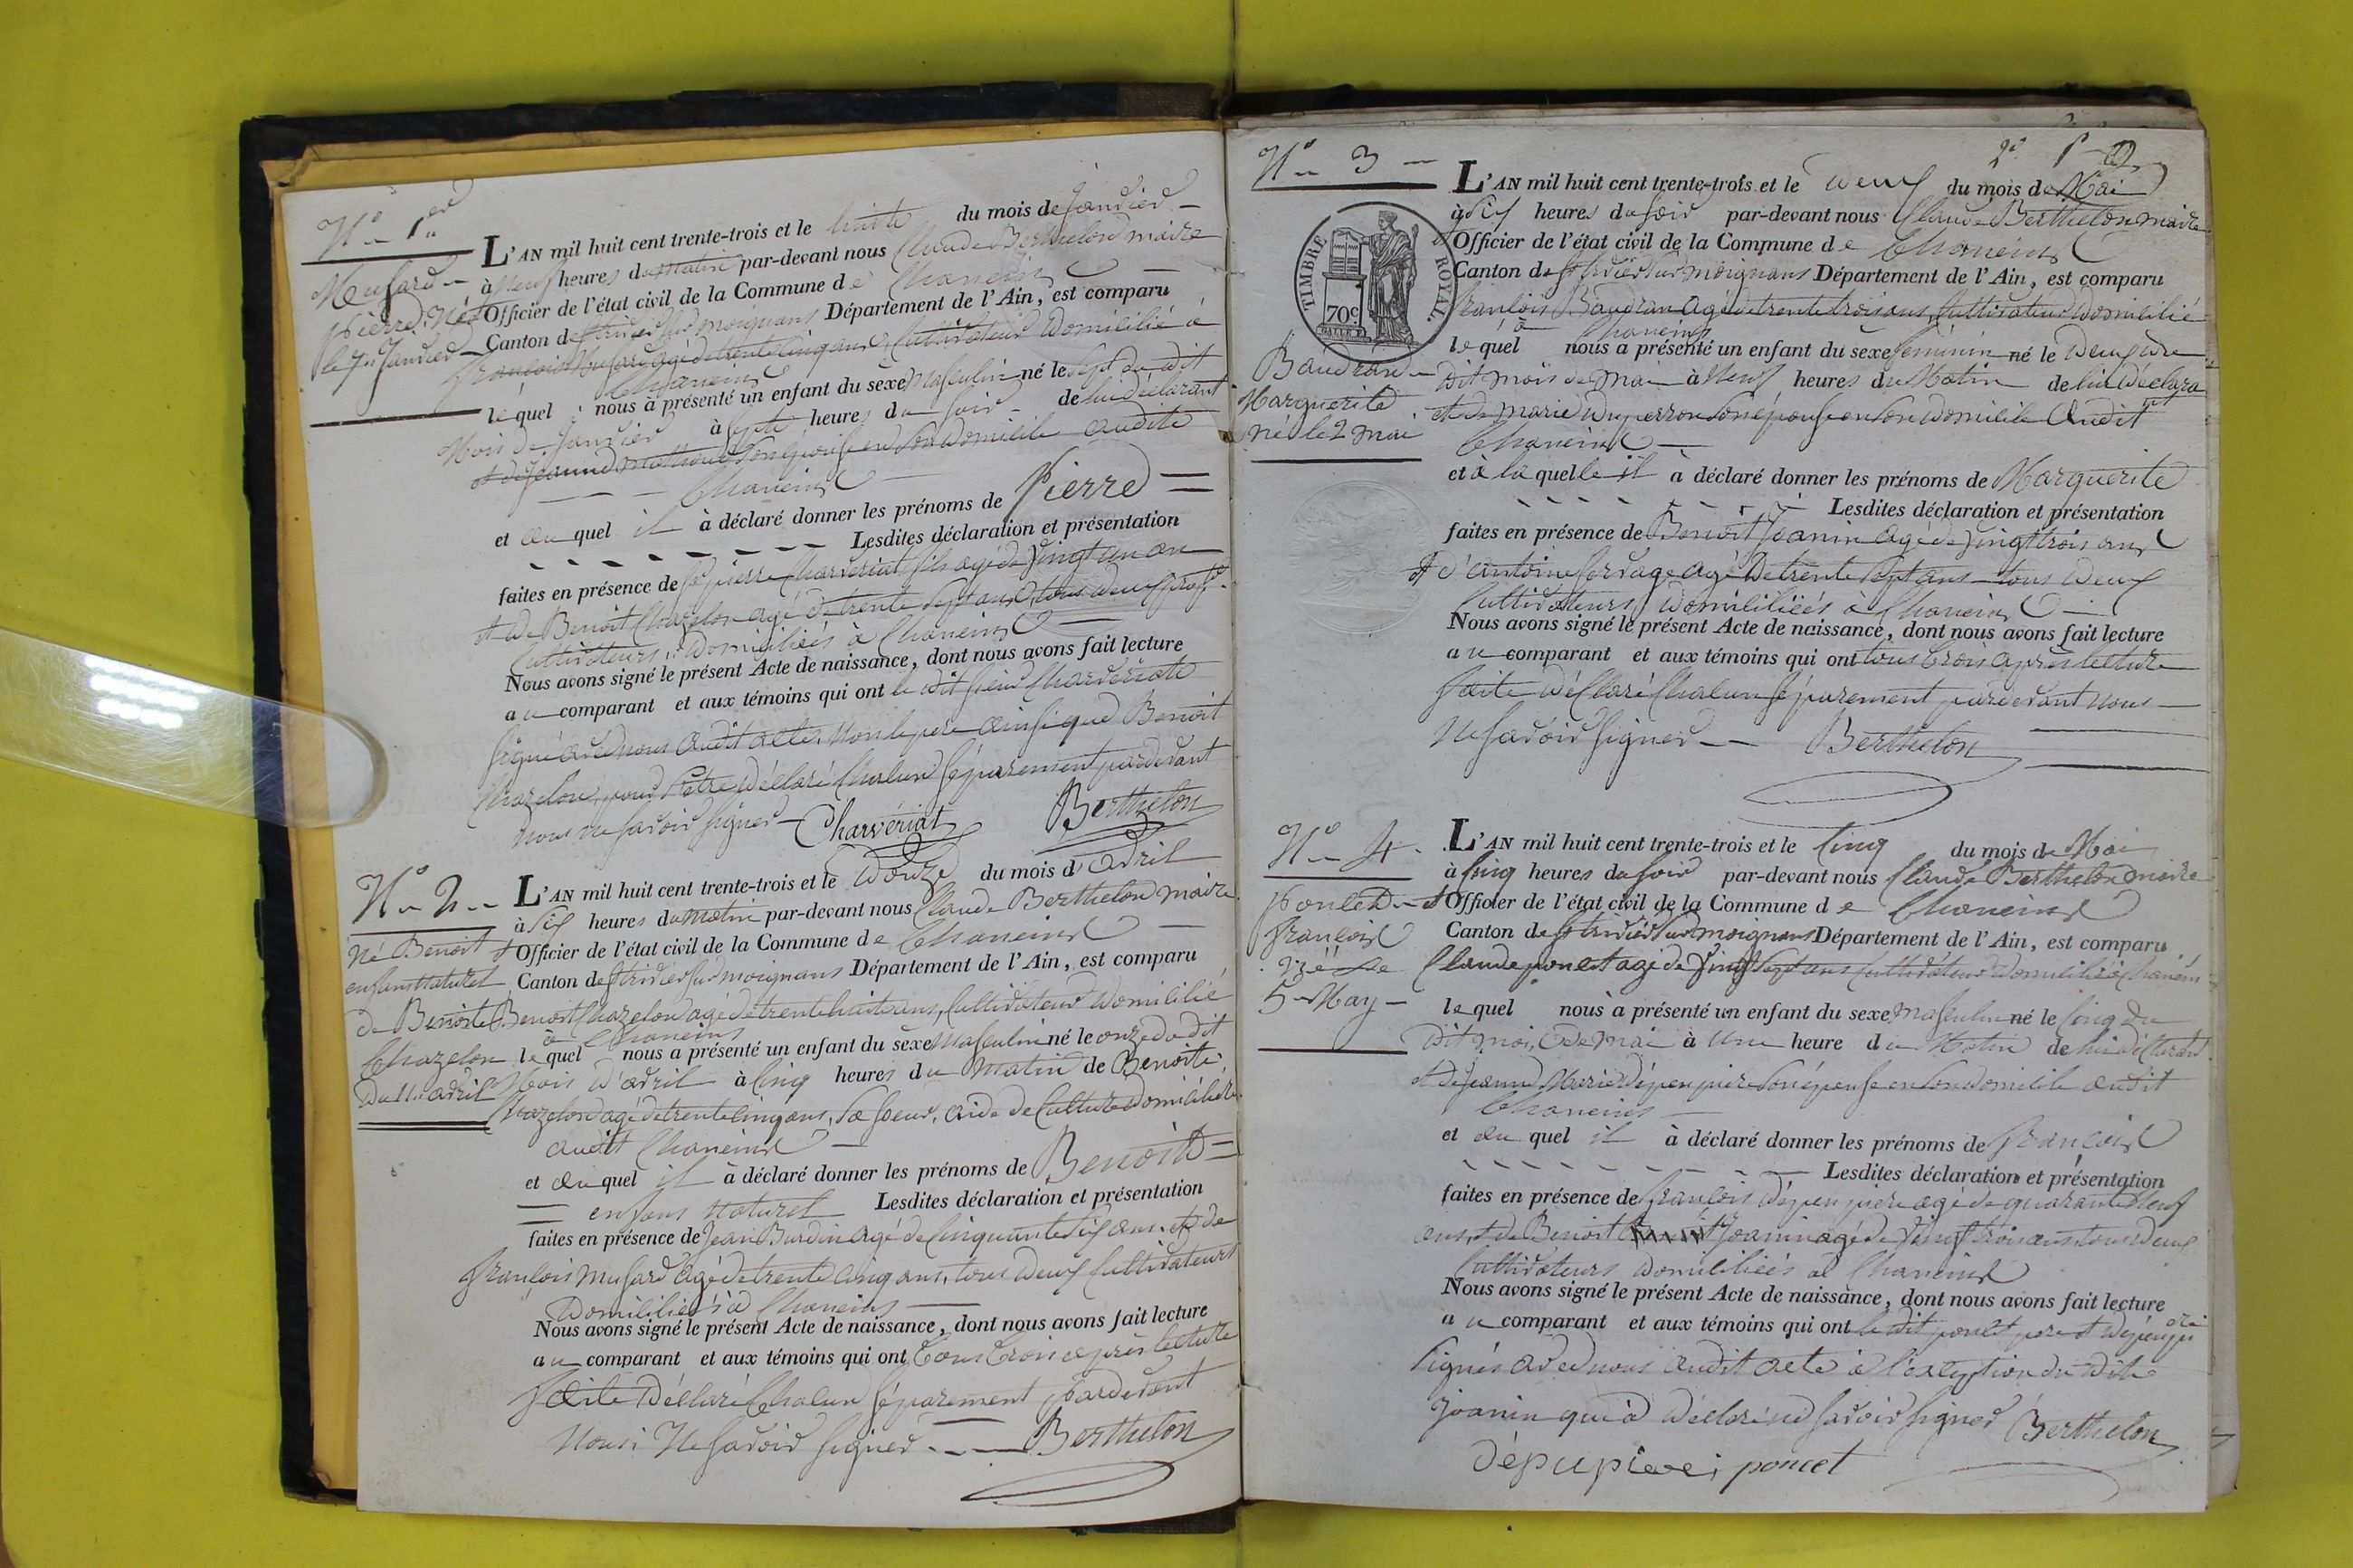 N° 1er
Musard
Pierre Né
le 7 Janvier
L'AN mil huit cent trente-trois et le huit du mois de Janvier
à neuf heures du matin par-devant nous Claude Berthelon maire
et Officier de l'état civil de la Commune de Chaneins
Canton de St trivier sur moignans Département de l'Ain, est comparu
François Musard agé de trente cinq ans, Cultivateur domicilié à
Chaneins
le quel nous à présenté un enfant du sexe Masculin né le sept du dit
Mois de Janvier à sept heures du soir de lui déclarant
et de Jeanne son épouse en son domicile audit
Chaneins
et au quel il à déclaré donner les prénoms de Pierre
Lesdites déclaration et présentation
faites en présence de Sr pierre Charvériat fils agé de vingt un an
et de Benoit Chazelon agé de trente sept ans, tous deux prop.
Cultivateurs, domiciliés à Chaneins
Nous avons signé le présent Acte de naissance, dont nous avons fait lecture
au comparant et aux témoins qui ont le dit sieur Charvériat
signé avec nous audit acte, non le pere ainsi que Benoit
Chazelon, pour l'etre déclaré Chacun séparement pardevant
nous ne savoir signer Charvériat Berthelon
N° 2
Né Benoit
enfant Naturel
de Benoite
Chazelon
du 11 avril
L'AN mil huit cent trente-trois et le douze du mois d'avril
à six heures du matin par-devant nous Claude Berthelon maire
et Officier de l'état civil de la Commune de Chaneins
Canton de St trivier sur moignans Département de l'Ain, est comparu
Benoit Chazelon agé de trente huit ans, Cultivateur domicilié
à Chaneins
le quel nous a présenté un enfant du sexe Masculin né le onze du dit
Mois d'avril à cinq heures du Matin de Benoite
Chazelon agé de trente cinq ans, sa soeur, aide de Culture domiciliée
audit Chaneins
et au quel il à déclaré donner les prénoms de Benoit
enfans Naturel Lesdites déclaration et présentation
faites en présence de Jean Burdin agé de Cinquante six ans et de
françois Musard agé de trente cinq ans, tous deux Cultivateurs
Domiciliés à Chaneins
Nous avons signé le présent Acte de naissance, dont nous avons fait lecture
au comparant et aux témoins qui ont tous trois après lecture
faite déclaré Chacun séparement pardevant
Nous Ne savoir signer Berthelon
2e
N° 3
TIMBRE ROYAL
70c
Baudrand
Marguerite
né le 2 mai
L'AN mil huit cent trente-trois et le deux du mois de Mai
à six heures du soir par-devant nous Claude Berthelon maire
et Officier de l'état civil de la Commune de Chaneins
Canton de St trivier sur moignans Département de l'Ain, est comparu
françois Baudran agé de trente trois ans, Cultivateur domicilié
à Chaneins
le quel nous a présenté un enfant du sexe féminin né le deux du
dit mois de Mai à Neuf heures du Matin de lui déclarant
et de Marie duperron son épouse en son domicile Audit
Chaneins
et à la quelle il à déclaré donner les prénoms de Marguerite
Lesdites déclaration et présentation
faites en présence de Benoit Joanin agé de vingt trois ans
et d'antoine agé de trente sept ans tous deux
Cultivateurs domiciliés à Chaneins
Nous avons signé le présent Acte de naissance, dont nous avons fait lecture
au comparant et aux témoins qui ont tous trois après lecture
faite déclaré Chacun séparement pardevant nous
Ne savoir signer Berthelon
N° 4
Poncet
françois
né le
5 May
L'AN mil huit cent trente-trois et le cinq du mois de Mai
à cinq heures du soir par-devant nous Claude Berthelon maire
et Officier de l'état civil de la Commune de Chaneins
Canton de St trivier sur moignans Département de l'Ain, est comparu
Claude poncet agé de vingt sept ans Cultivateur domicilié à Chaneins
le quel nous à présenté un enfant du sexe Masculin né le cinq du
Dit mois de mai à Une heure du Matin de lui déclarant
et de Jeanne Marie dépeupiere son épouse en son domicile audit
Chaneins
et au quel il à déclaré donner les prénoms de françois
Lesdites déclaration et présentation
faites en présence de françois dépeupiere agé de quarante Neuf
ans, et de Benoit Joanin agé de vingt trois ans tous deux
Cultivateurs domiciliés à Chaneins
Nous avons signé le présent Acte de naissance, dont nous avons fait lecture
au comparant et aux témoins qui ont le dit poncet pere et
signés avec nous audit acte à l'exception du dit
Joanin qui à déclaré ne savoir signer Berthelon
dépupiere poncet